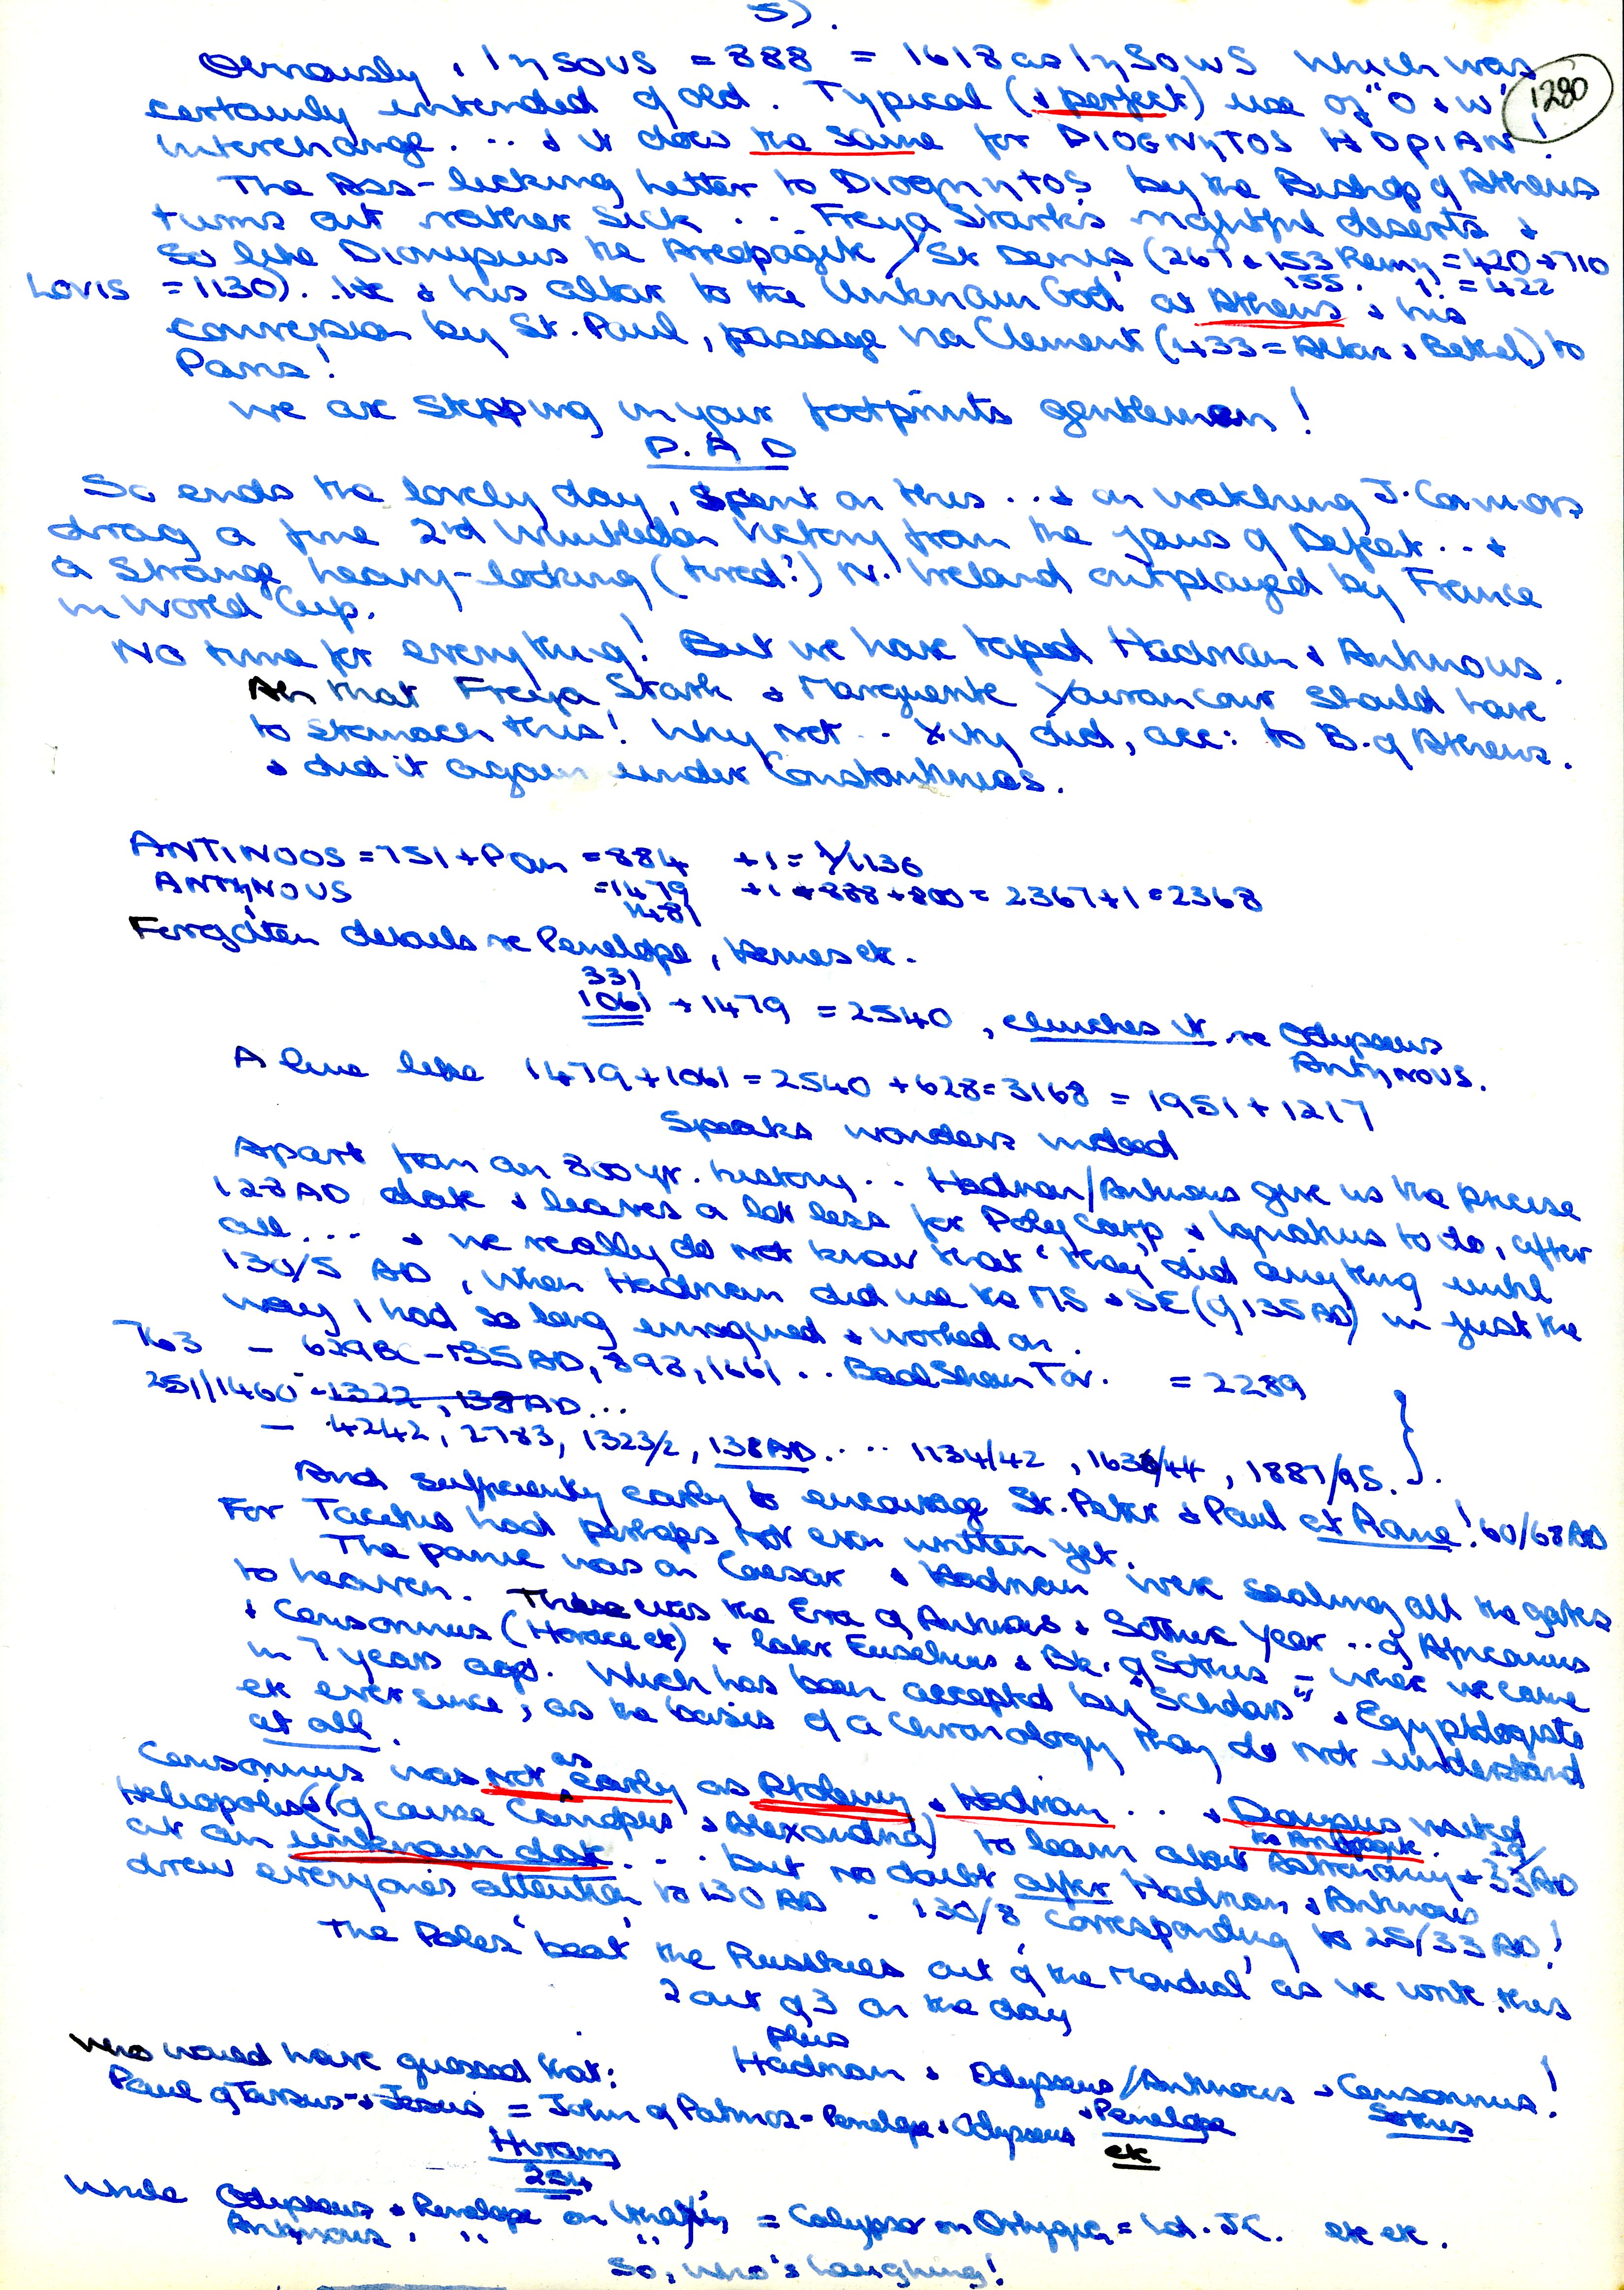 5).
Obviously, IηSOUS = 888 = 1618 as IηSOwS which was
1280
certainly intended of old. Typical (& perfect) use of "O & w"
interchange. ... & it does the same for DIOGNηTOS HADPIAN!
The Ass-licking letter to Diognηtos by the Bishop of Athens
turns out rather sick ... Freya Stark's rightful deserts &
so like Dionysius the Areopagite / St Denis (267 & 153 Remy = 420 + 710
155. 1! = 422
Louis = 1130). He & his altar to the Unknown God at Athens & his
conversion by St. Paul, passage via Clement (433 = Altar & Bethel) to
Paris!
We are stepping in your footprints gentlemen!
P. A D
So ends the lovely day, spent on this ... & on watching J. Connors
drag a fine 2nd Wimbledon Victory from the jaws of Defeat ... &
a strange heavy-looking (tired?) N. Ireland outplayed by France
in World Cup.
No time for everything! But we have taped Hadrian & Antinous.
Ah that Freya Stark & Marguerite Yourancour should have
to stomach this! Why not .. Xity did, acc: to B. of Athens.
& did it again under Constantinus.
ANTINOOS = 751 + Pan = 884 + 1 = 1/1136
ANTηNOUS = 1479 + 1 + 888 + 800 = 2367 + 1 = 2368
1481
Forgotten details re Penelope, Hermes etc.
331
1061 + 1479 = 2540, clinches it re Odysseus
Antηnous.
A line like 1479 + 1061 = 2540 + 628 = 3168 = 1951 + 1217
Speaks wonders indeed
Apart from an 800 yr. history .. Hadrian/Antinous give us the precise
128 AD date & leaves a lot less for Polycarp & Ignatius to do, after
all ... & we really do not know that 'they' did anything until
130/5 AD, when Hadrian did use the MS & SE (of 135 AD) in just the
way I had so long imagined & worked on.
763 - 629BC - 135 AD, 898, 1661 .. Bad Shem Tov. = 2289
251/1460 - 1322, 138 AD ...
- 4242, 2783, 1323/2, 138 AD .... 1134/42, 1636/44, 1887/95.
And sufficiently early to encourage St. Peter & Paul at Rome! 60/68 AD
For Tacitus had perhaps not even written yet.
The panic was on Caesar & Hadrian were sealing all the gates
to heaven. These was the Era of Antinous & Sothis Year .. of Africanus
& Censorinus (Horace etc) + later Eusebius & Bk. of Sothis = where we came
in 7 years ago. Which has been accepted by "Scholars" & Egyptologists
etc ever since, as the basis of a chronology they do not understand
at all.
Censorinus was not as early as Ptolemy & Hadrian .. & Dionysius visited
the Areopagite 29/
Heliopolis (of course Canopus & Alexandria) to learn about Astronomy + 33 AD
at an unknown date ... but no doubt after Hadrian & Antinous
drew everyone's attention to 130 AD. 130/8 corresponding to 25/33 AD!
The Poles 'beat' the Russkies out of the Mondial, as we write this
2 out of 3 on the day
plus
Who would have guessed that: Hadrian & Odysseus/Antinous & Censorinus!
Paul of Tarsus & Jesus = John of Patmos = Penelope & Odysseus & Penelope Sothis
Hiram etc
254
While Odysseus & Penelope on Ithaki, = Calypso on Ortygia, = Id. JC. etc etc.
Antηnous . " "
So, who's laughing!